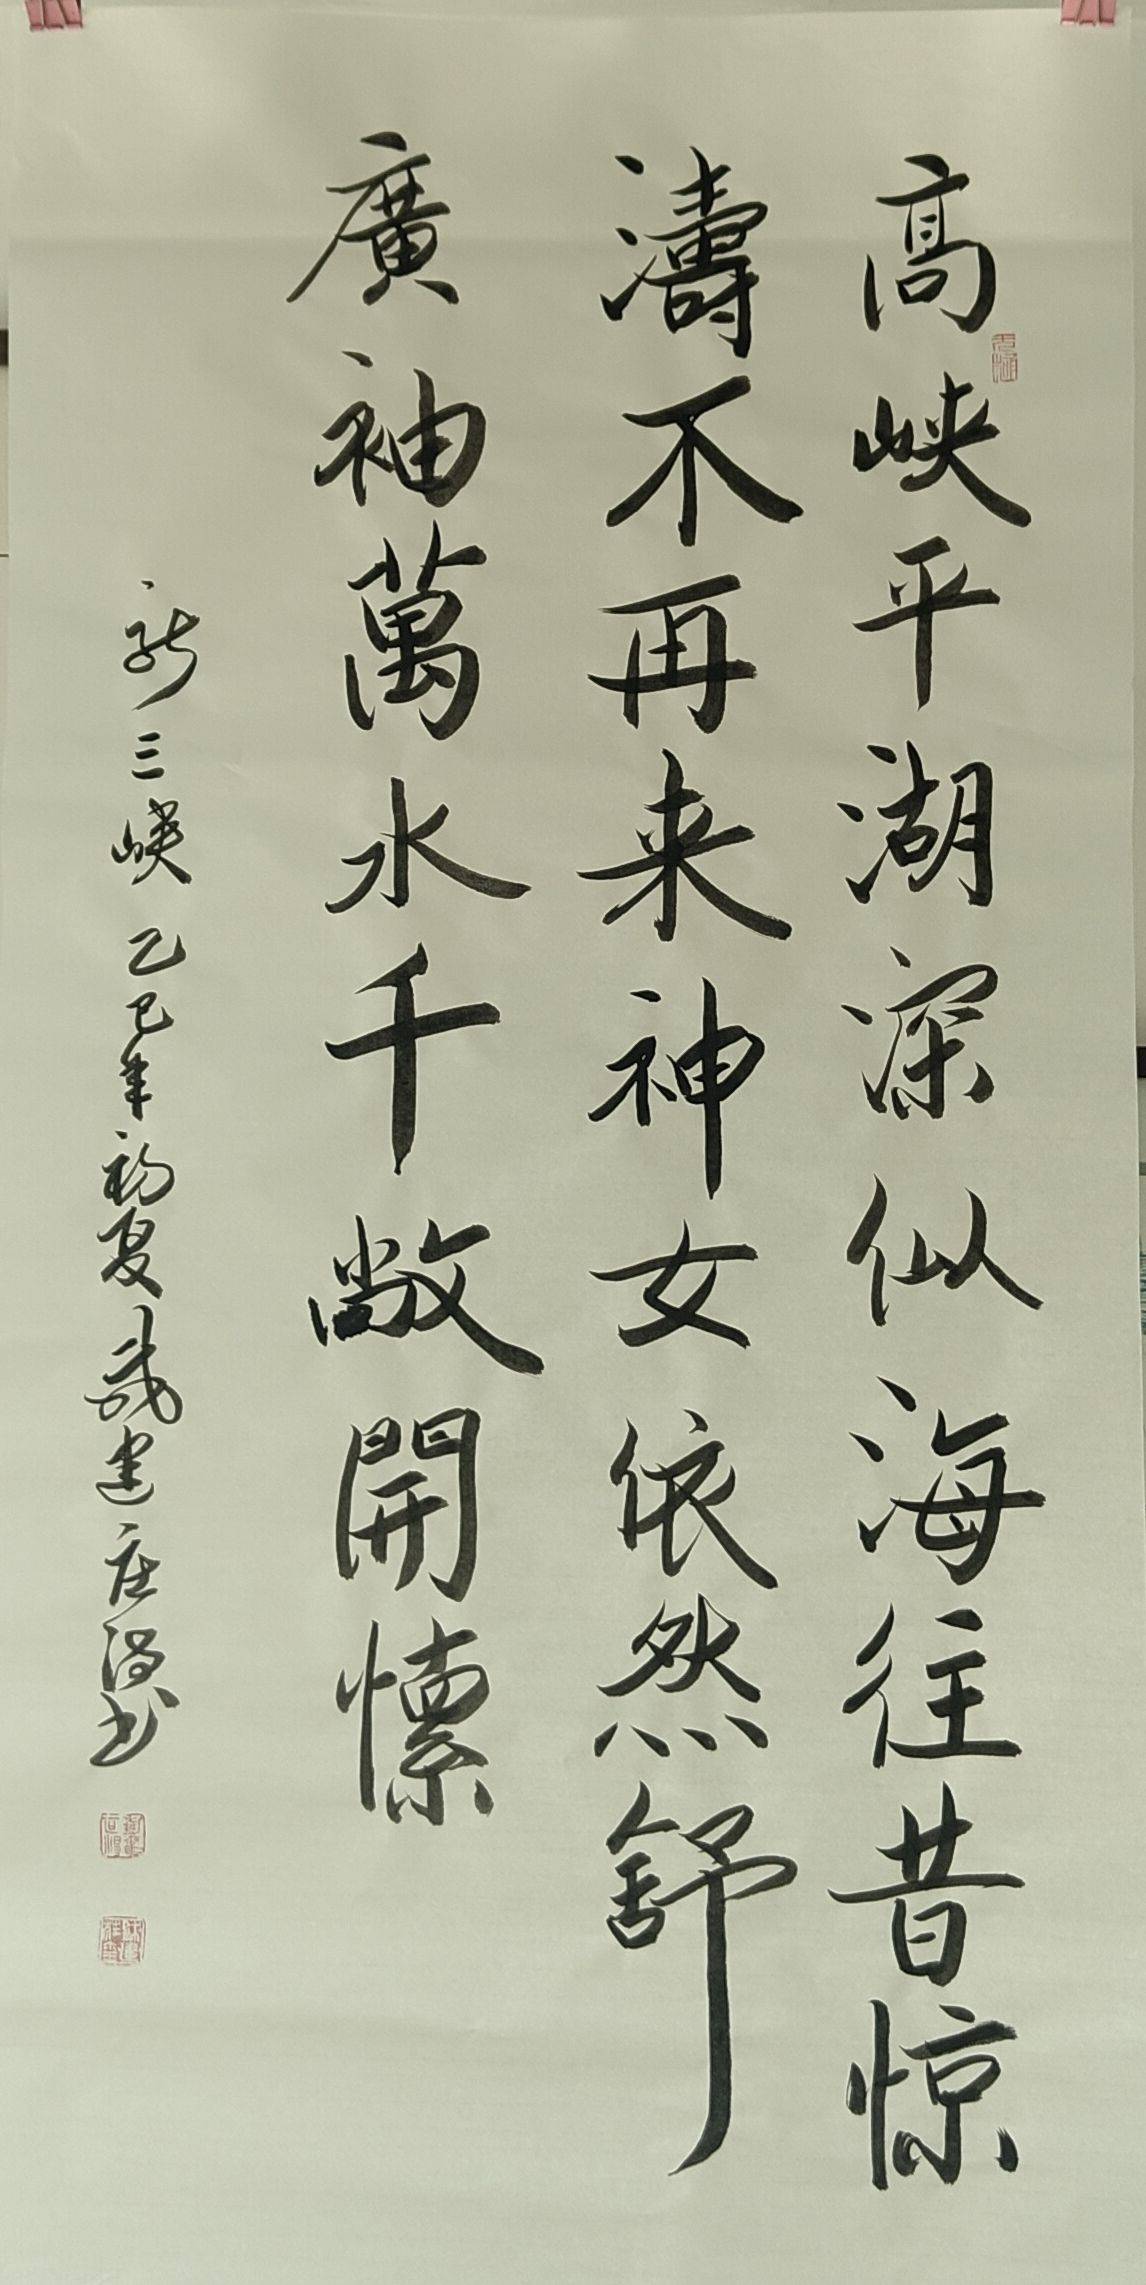 高峡平湖深似海往昔惊
濤不再来神女依然舒
廣袖萬水千敞開懷
新三峡 乙巳年初夏 建庄鴻书